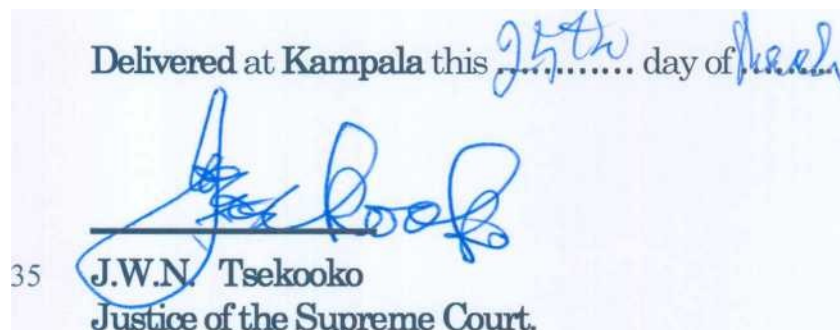 Delivered at Kampala this 25th day of
35 J.W.N. Tsekooko
Justice of the Supreme Court.